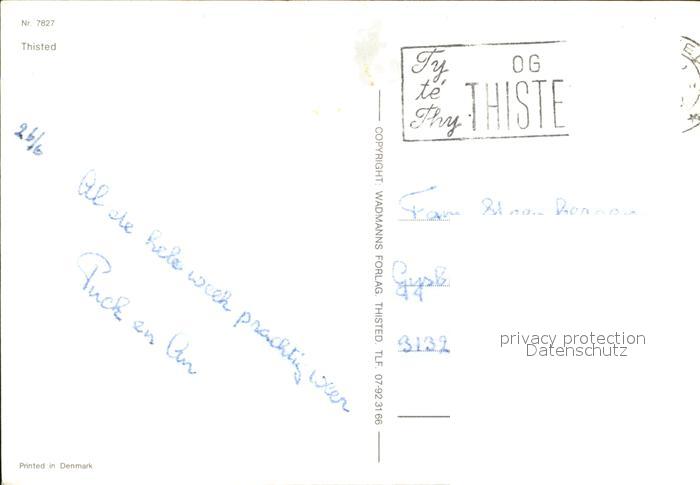 Nr. 7827
Thisted
26/6
Al de hele week prachtig weer
Puck en An
Printed in Denmark
COPYRIGHT: WADMANNS FORLAG, THISTED. TLF. 07-923166
Ty
té
Thy
OG
THISTE
Fam
3132
privacy protection
Datenschutz